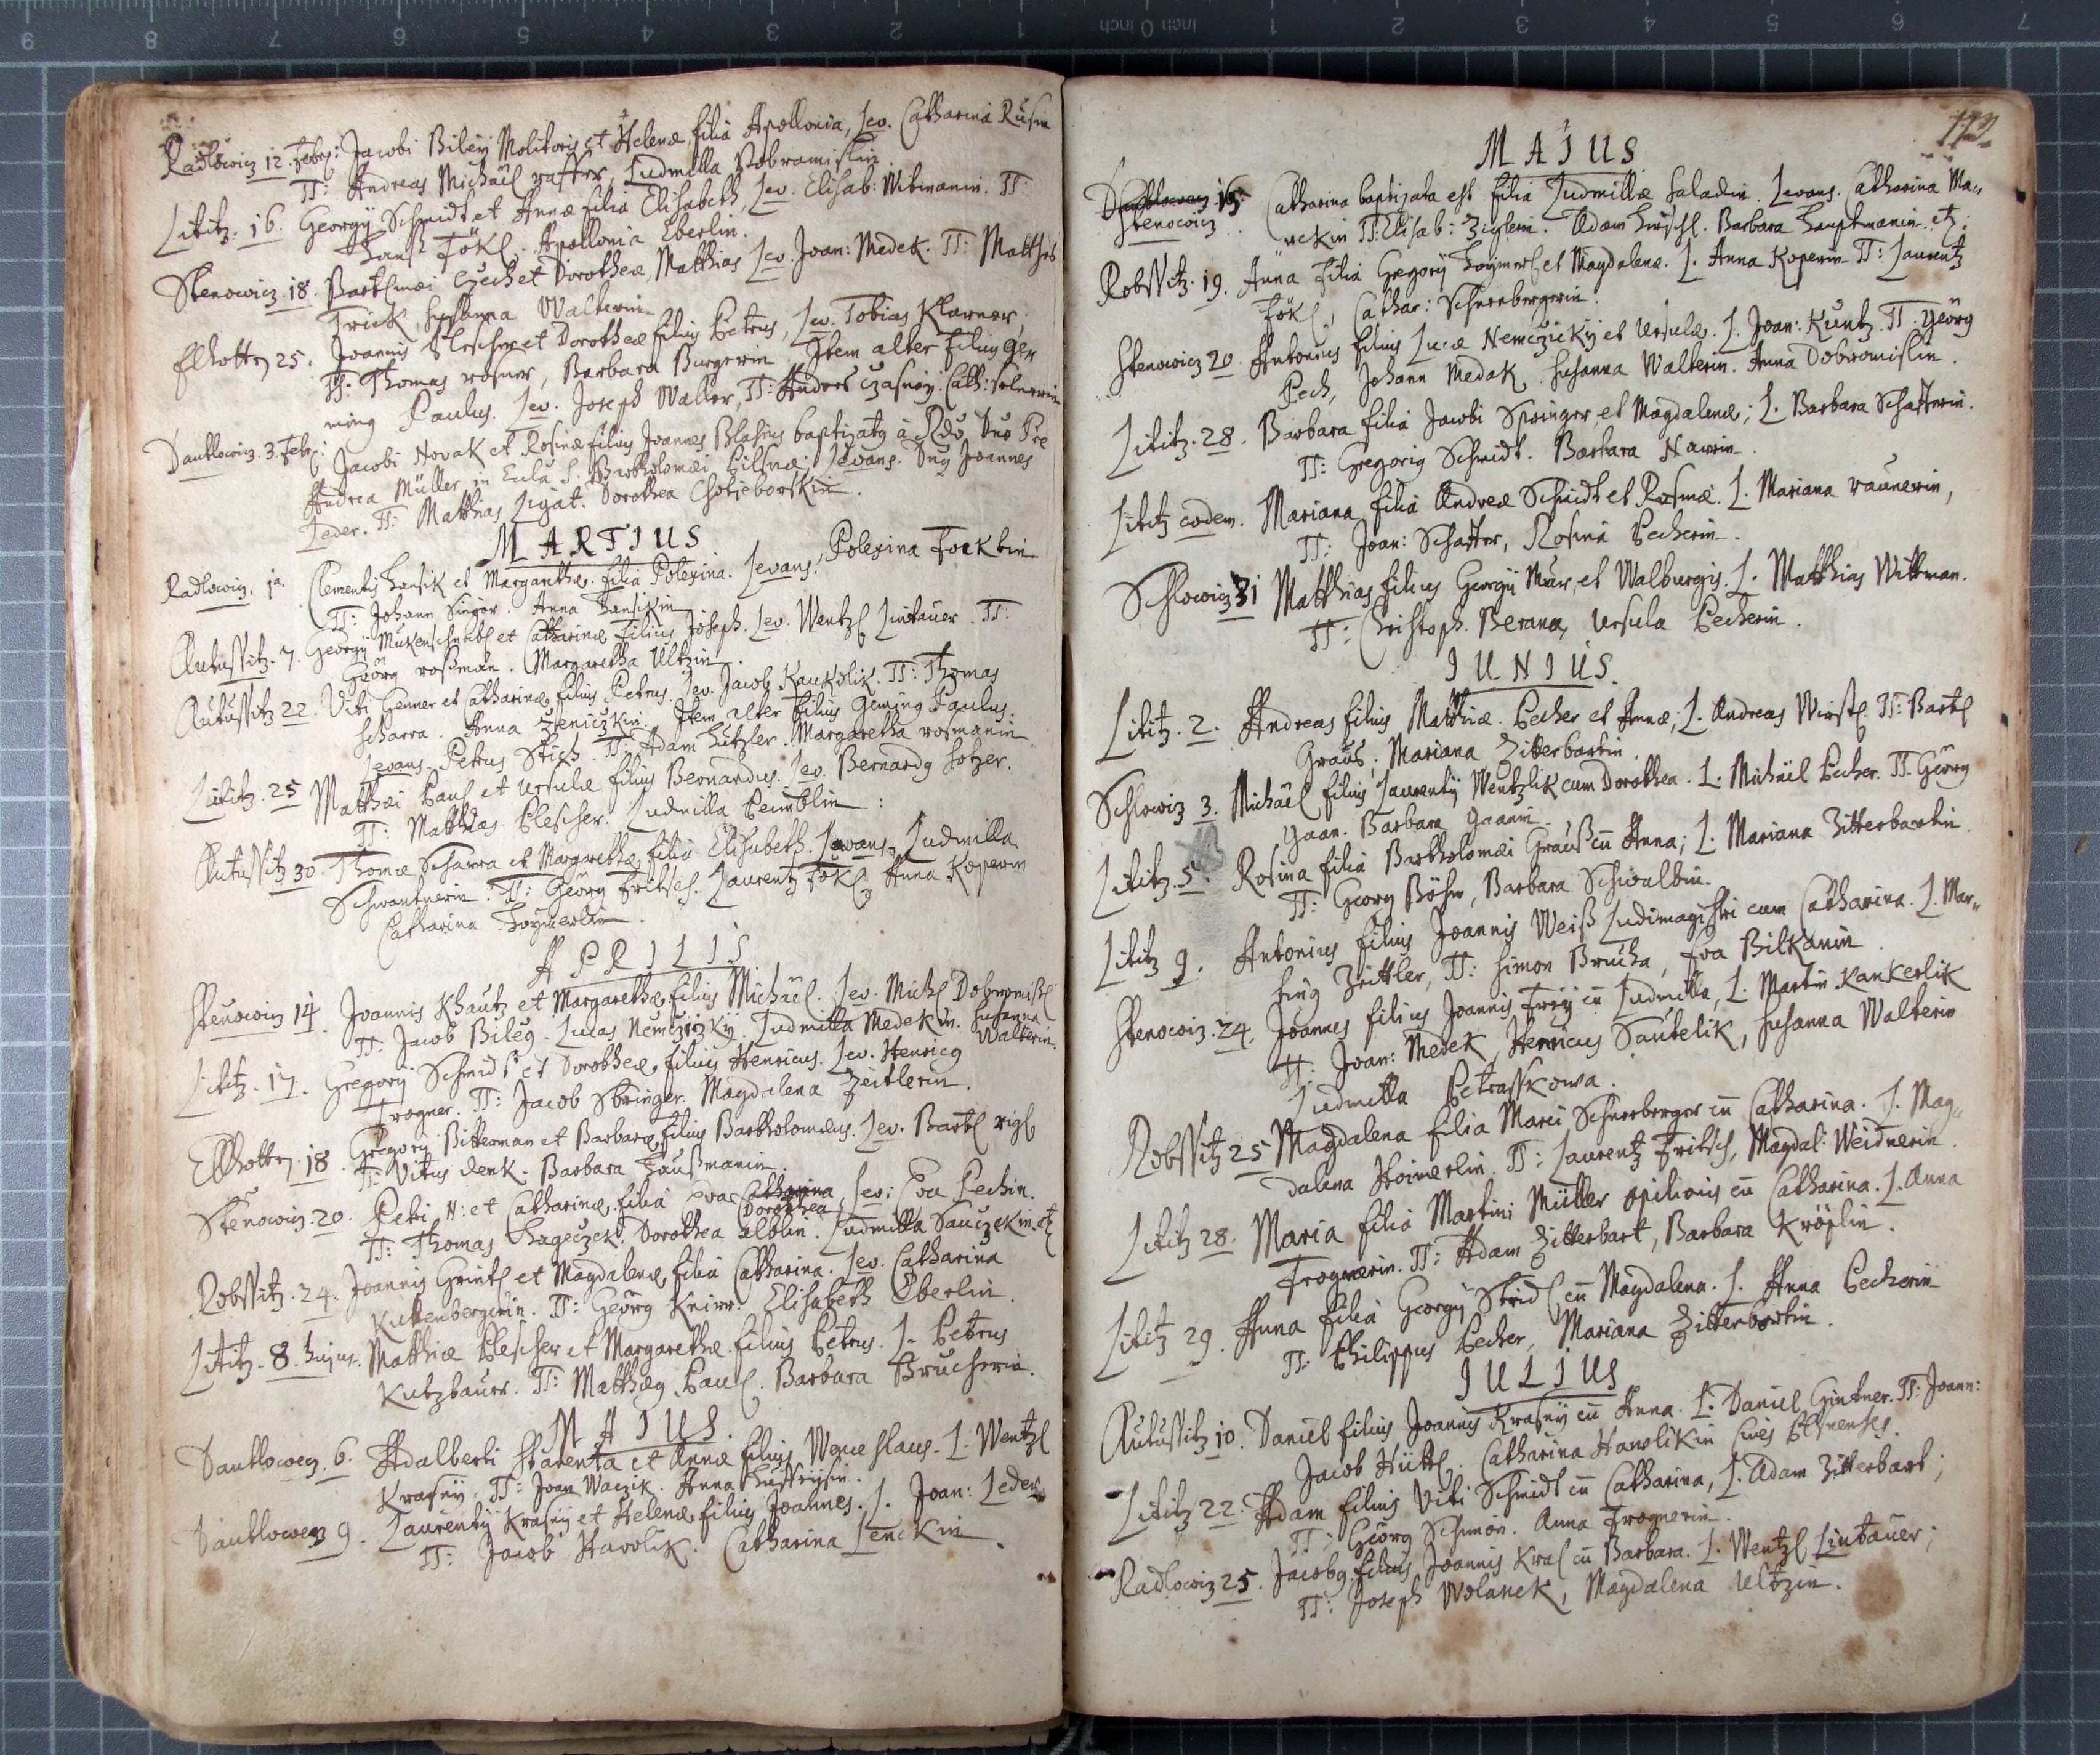 Radlowicz 12. Febr: Jacobi Biley Molitoris et Helenæ, filia Apollonia, Lev. Catharina
TT: Andreas Michael Ludmilla Dobromislin
Lititz. 16. Georgÿ Schmidt et Annæ filia Elisabeth, Lev. Elisab: Witmanin. TT:
Hanß Fökl. Apollonia Eberlin.
Stenowicz. 18. Bartlmæi Czech et Dorotheæ, Matthias Lev. Joan: Medek. TT:
Frick, Susanna Walterin
Ellhotten 25. Joannis et Dorotheæ filius Petrus, Lev. Tobias Klarner,
TT: Thomas rosner, Barbara Burgerin Item alter filius gem
ming Paulus. Lev. Joseph Waller, TT: Anders Czasney. Cath:
Dantlowicz. 3. Febr: Jacobi Novak et Rosinæ filius Joannes Blasius baptizatg à Rdo Dno
Andrea Müller in S. Bartholomæi Pilsnæ. Levans. Dng Joannes
Leder. TT: Matthias Ligat. Dorothea Chotieborskin.
MARTIUS
Radlowicz. Clementis Hansik et Margarethæ. filia Polexina. Levans. Polexina
TT: Johann Singer. Anna Hansikin
Autussitz. 7. Georgÿ et Catharinæ filius Joseph. Lev. Wentzl Lintauer. TT:
Görg roßman. Margaretha Ültzin.
Autussitz 22. Viti Genner et Catharinæ filius Petrus. Lev. Jacob Kaukolik. TT: Thomas
Scharra. Anna Item alter filius geming Paulus.
Levans. Petrus Stich. TT: Adam Hutzler. Margaretha rosmanin
Lititz. 25 Matthæi Paul et Ursulæ filius Bernardus. Lev. Bernardg
TT: Matthias Plescher. Ludmilla
Autussitz 30. Thomæ Scharra et Margarethæ filia Elisabeth. Levans. Ludmilla
Schwantnerin. TT: Georg Fritsch. Laurentz Fökl, Anna Koperin
Catharina Hoymerlin.
APRILIS
Stenowicz 14 Joannis Khautz et Margarethæ filius Michael. Lev. Michl Dobromißl
TT: Jacob Bileg. Lucas Nemczizkÿ. Ludmilla Medekin. Susanna
Walterin.
Lititz. 17. Gregorÿ Schmidt et Dorotheæ, filius Henricus. Lev. Henricg
Trogner. TT: Jacob Springer. Magdalena Zeitlerin.
Ellhotten. 18. Gregorÿ Bitterman et Barbaræ, filius Bartholomæus. Lev. Bartl
TT: Vitus Denk. Barbara Haußmanin.
Stenowicz. 20. Petri, N: et Catharinæ, filia Eva Catharina, Lev: Eva Pechin.
Dorothea
TT: Thomas Hageczek. Dorothea Ludmilla Sauczekin. etz
Robssitz. 24. Joannis Grintl et Magdalenæ, filia Catharina. Lev. Catharina
Kuttenbergerin. TT: Georg Knirr. Elisabeth Eberlin.
Lititz. 8. hujus. Matthiæ Plescher et Margarethæ. filius Petrus. L. Petrus
Kutzbauer. TT: Matthæg Paul. Barbara Brucherin.
MAJUS.
Dantlowen. 6. Adalberti et Annæ filius Wenceslaus. L. Wentzl
Krasnÿ, TT: Joan Waczik. Anna
Dantlowen 9. Laurentÿ Krasnÿ et Helenæ, filius Joannes. L. Joan: Leder.
TT: Jacob Havolik. Catharina Lenckin.
112
MAJUS
Dantlowen 15. Catharina baptizata est filia Ludmillæ Saladin. Levans. Catharina Ma„
Stenowicz.
TT: Elisab: Zieglerin. Adam Hirschl. Barbara Hauptmanin. etz:
Robssitz. 19. Anna filia Gregorÿ Hoymerl et Magdalenæ. L. Anna Koperin TT: Laurentz
Fökl, Cathar: Schnenbergerin.
Stenowicz 20. Antonius filius Lucæ Nemczickÿ et Ursulæ. L. Joan: Kuntz. TT. Georg
Pech, Johann Medak. Susanna Walterin. Anna Dobromislin.
Lititz. 28. Barbara filia Jacobi Springer, et Magdalenæ; L. Barbara Schafferin.
TT: Gregorig Schmidt. Barbara
Lititz eodem. Mariana filia Andreæ Schmidt et Rosinæ. L. Mariana raunerin,
TT: Joan: Schaffer, Rosina Pecherin.
Schlowicz 31 Matthias filius Georgÿ et Walburgis. L. Matthias Wittman.
TT: Christoph. Berana, Ursula Pecherin.
IUNIUS.
Lititz. 2. Andreas filius Matthiæ. Pecher et Annæ; L. Andreas Wirstl. TT: Bartl
Grauß; Mariana Zitterbartin
Schlowiz 3. Michael filius Laurentÿ Wentzlik cum Dorothea. L. Michael Pecher. TT. Georg
Gaan. Barbara Gaanin.
Lititz. 5. Rosina filia Bartholomæi Grauß cu Anna; L. Mariana Zitterbartin
TT: Georg Böhm, Barbara Schwalbin.
Lititz 9. Antonius filius Joannis Weiß Ludimagistri cum Catharina. L. Mar„
Zeittler, TT: Simon Brucha, Eva Bilkanin.
Stenowiz. 24. Joannes filius Joannis Freÿ cu Ludmilla, L. Martin Kankerlik
TT: Joan: Medek, Henricus Sautelik, Susanna Walterin
Ludmilla Petrasskowa.
Robssitz 25 Magdalena filia Marci Schneeberger cu Catharina. L. Mag„
dalena Hoimerlin. TT: Laurentz Fritsch, Magdal: Weidnerin.
Lititz 28. Maria filia Martini Müller opilionis cu Catharina. L. Anna
Trognerin. TT: Adam Zitterbart, Barbara Kröplin.
Lititz 29. Anna filia Georgÿ Stridl cu Magdalena. L. Anna Pecherin
TT: Philippus Pecher, Mariana Zitterbartin.
IULIUS
Autussitz 10. Daniel filius Joannis Krasnÿ cu Anna. L. Daniel Gintner. TT: Joann:
Jacob Hüttl. Catharina Hanolikin Cives
Lititz 22. Adam filius Viti Schmidt cu Catharina, L. Adam Zitterbart;
TT: Georg Schimon. Anna Trognerin.
Radlowiz 25. Jacobg filius Joannis Kral cu Barbara. L. Wentzl Lintauer;
TT: Joseph Wolanek, Magdalena Ultzin.